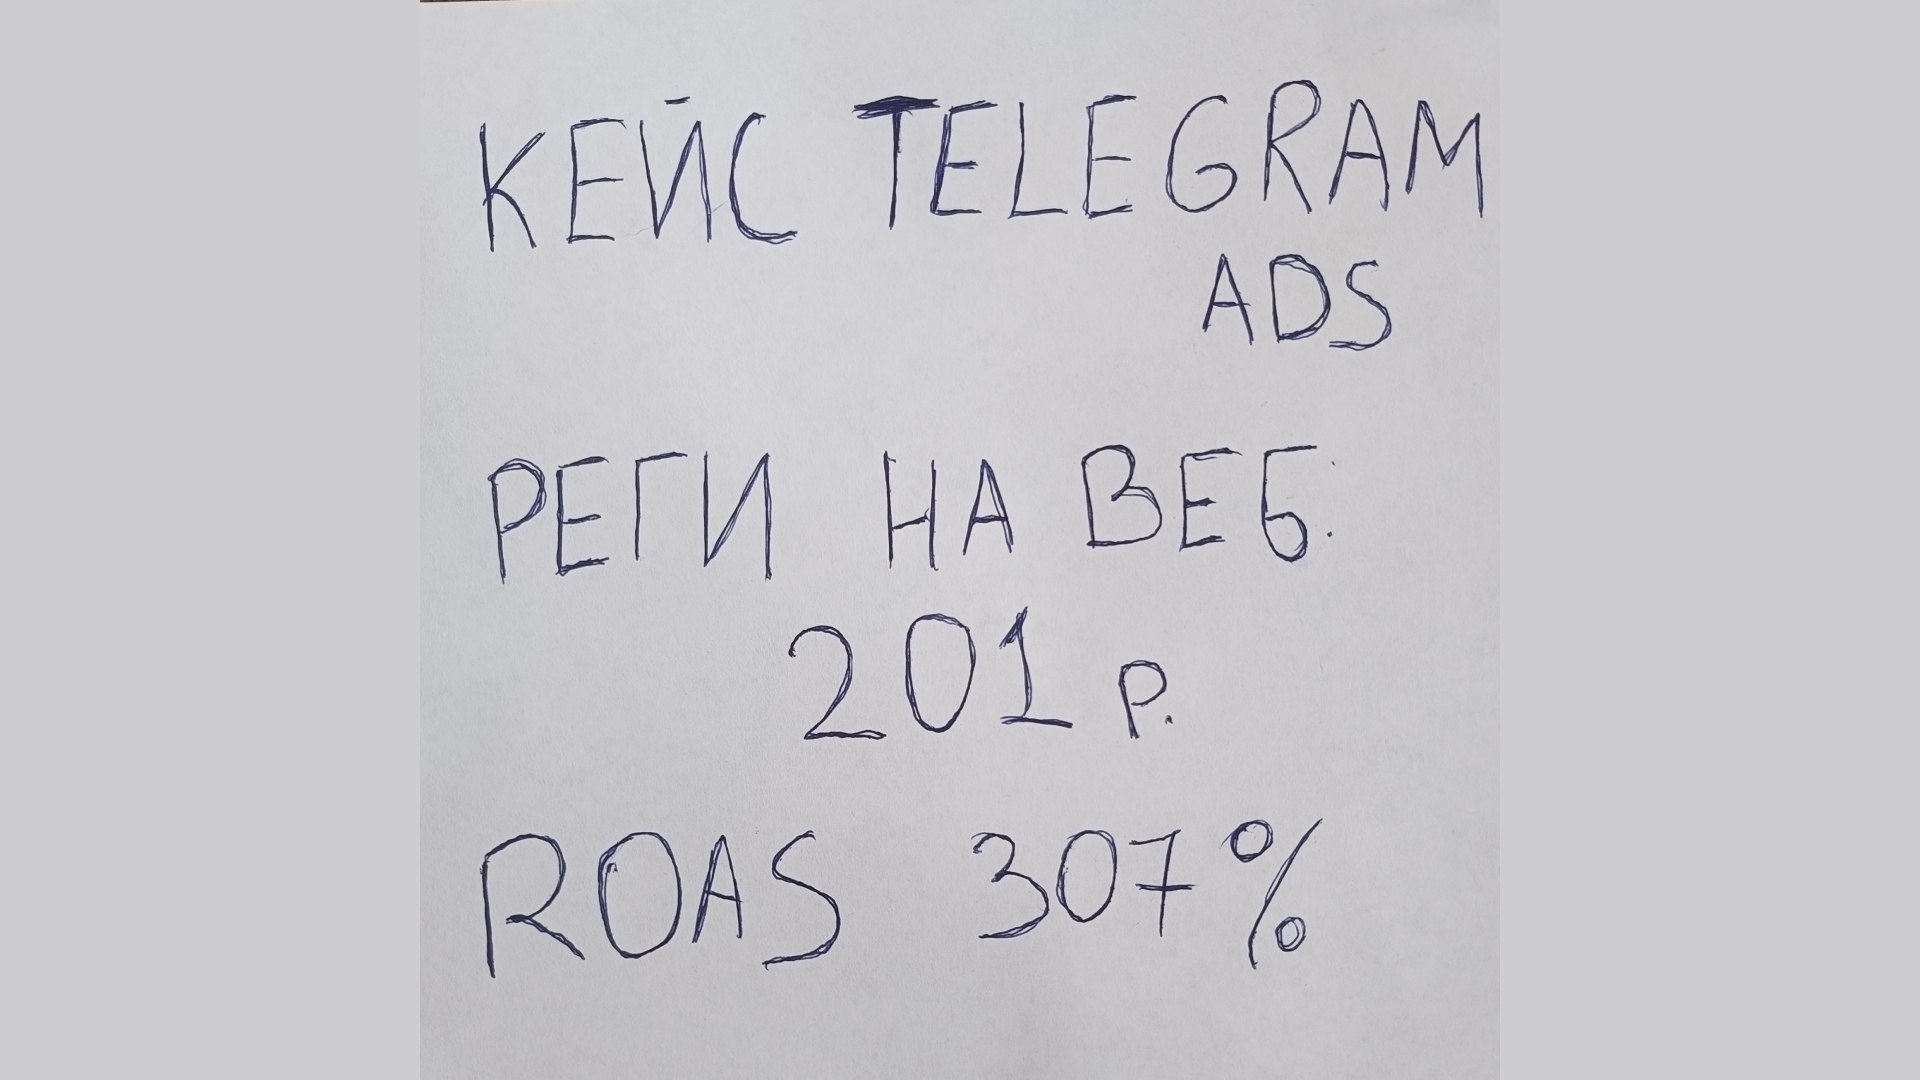 КЕЙС TELEGRAM
ADS
РЕГИ НА ВЕБ:
201 р.
ROAS 307%